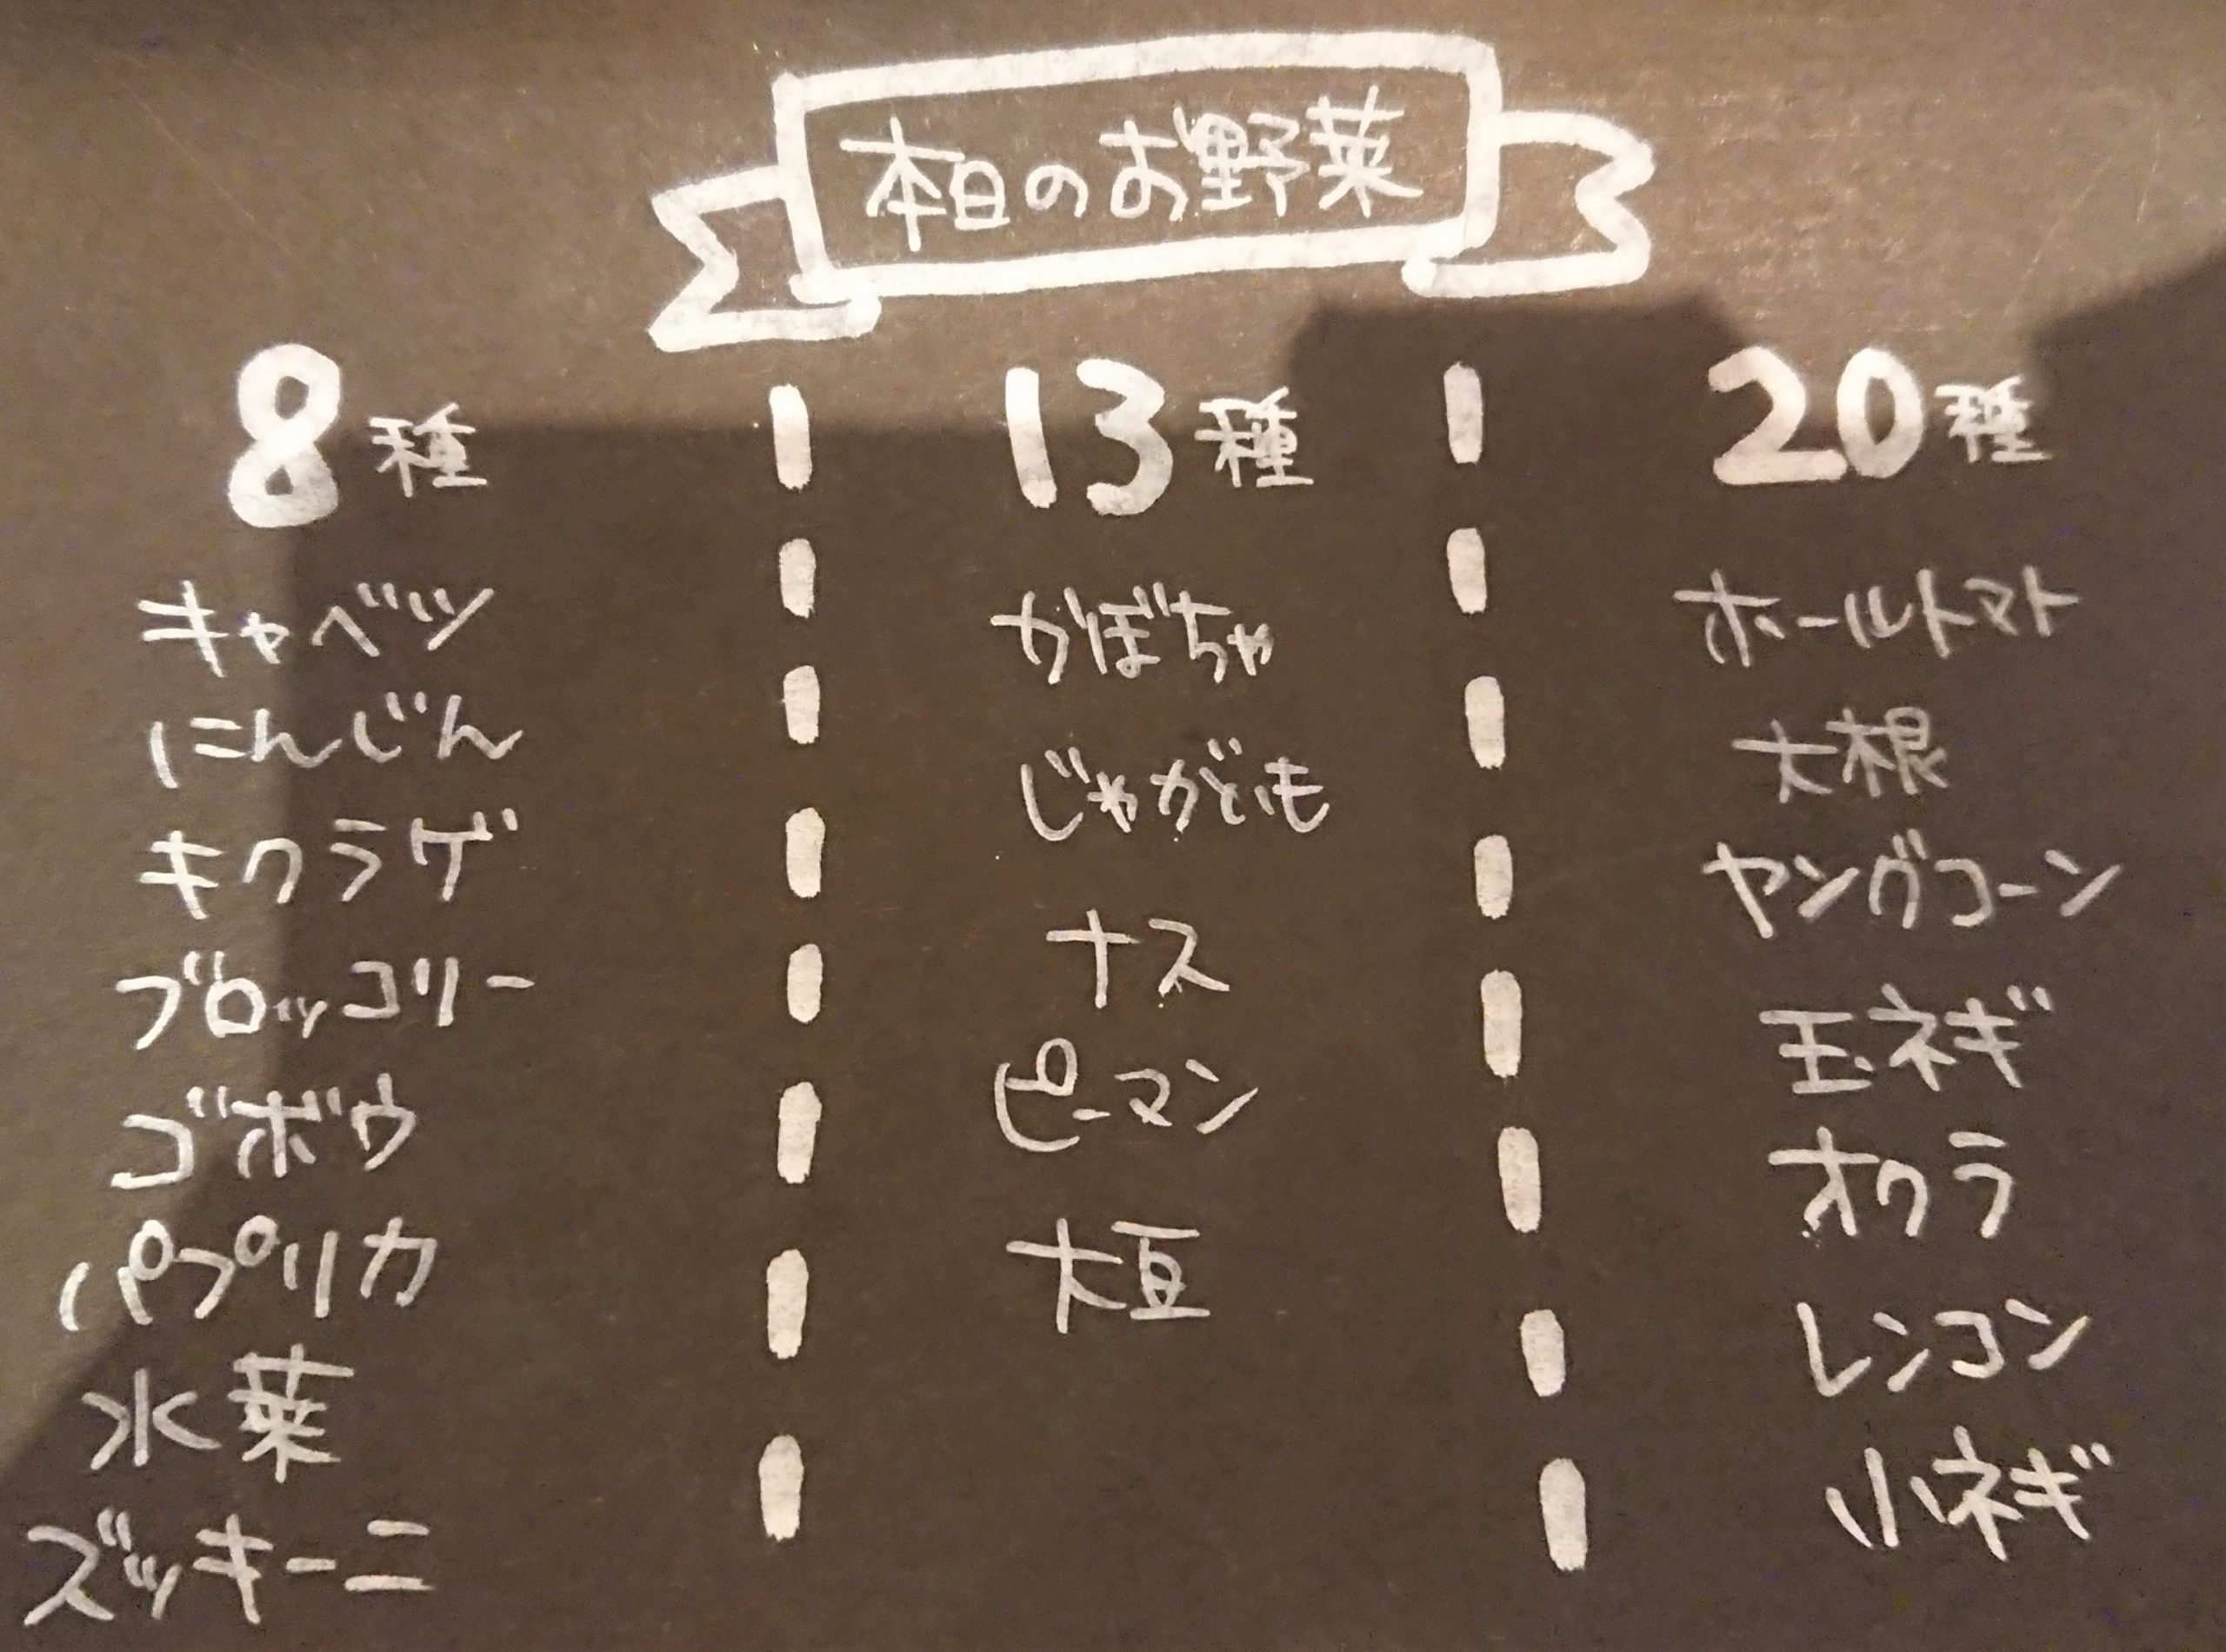 本日のお野菜
8種
キャベツ
にんじん
キクラゲ
ブロッコリー
ゴボウ
パプリカ
水菜
ズッキーニ
13種
かぼちゃ
じゃがいも
ナス
ピーマン
大豆
20種
ホールトマト
大根
ヤングコーン
玉ネギ
オクラ
レンコン
小ネギ